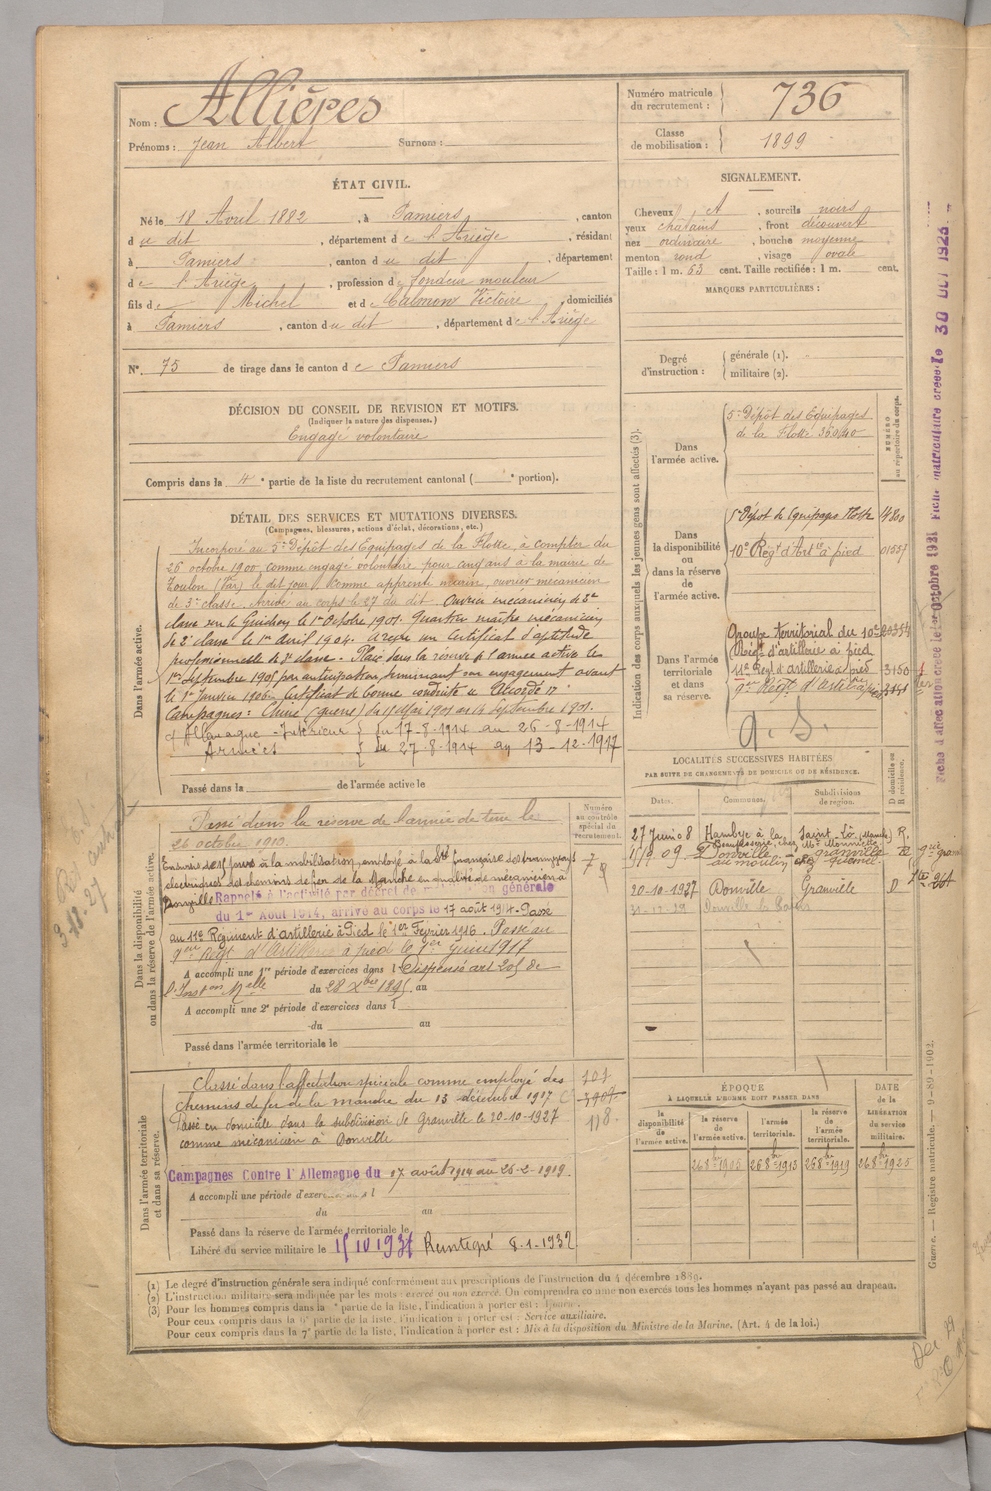 Nom : Allières
Prénoms : Jean Albert Surnom :
Numéro matricule du recrutement : 736
Classe de mobilisation : 1899
ÉTAT CIVIL.
Né le 18 Avril 1882, à Pamiers, canton
du dit, département de l'Ariège, résidant
à Pamiers, canton du dit, département
de l'Ariège, profession de fondeur mouleur
fils de Michel et de Calmon Victoire, domiciliés
à Pamiers, canton du dit, département de l'Ariège
N°. 75 de tirage dans le canton de Pamiers
DÉCISION DU CONSEIL DE REVISION ET MOTIFS.
(Indiquer la nature des dispenses.)
Engagé volontaire
Compris dans la 4e partie de la liste du recrutement cantonal ( e portion).
SIGNALEMENT.
Cheveux et, sourcils noirs
yeux chatains, front découvert
nez ordinaire, bouche moyenne
menton rond, visage ovale
Taille : 1 m. 63 cent. Taille rectifiée : 1 m. cent.
MARQUES PARTICULIÈRES :
Degré d'instruction : générale (1).
militaire (2).
DÉTAIL DES SERVICES ET MUTATIONS DIVERSES.
(Campagnes, blessures, actions d'éclat, décorations, etc.)
Dans l'armée active.
Incorporé au 5e Dépôt des Equipages de la Flotte, à compter du
26 octobre 1900 comme engagé volontaire pour cinq ans à la mairie de
Toulon (Var) le dit jour comme apprenti marin, ouvrier mécanicien
de 3e classe. Arrivé au corps le 27 du dit. Ouvrier mécanicien de 2e
classe sur le Guichen le 1er Octobre 1901. Quartier maître mécanicien
de 2e classe le 1er Avril 1904. A reçu un Certificat d'aptitude
professionnelle de 2e classe. Placé dans la réserve de l'armée active le
1er Septembre 1905 par anticipation, terminant son engagement avant
le 1er Janvier 1906. Certificat de bonne conduite "Accordé".
Campagnes : Chine (guerre) du 11 Mai 1901 au 14 Septembre 1901.
d'Allemagne - Intérieur du 17-8-1914 au 26-8-1914
Armées du 27-8-1914 au 13-12-1917
Passé dans la de l'armée active le
Indication des corps auxquels les jeunes gens sont affectés (3).
NUMÉRO au répertoire du corps.
Dans l'armée active.
5e Dépôt des Equipages
de la Flotte
Dans la disponibilité ou dans la réserve de l'armée active.
5e Dépôt des Equipages Flotte 4800
10e Régt d'Artie à pied 01557
Dans l'armée territoriale et dans sa réserve.
Groupe territorial du 10e
Régt d'artillerie à pied
11e Régt d'artillerie à pied 3150
9e Régt d'Artillie à pied
Dans la disponibilité ou dans la réserve de l'armée active.
Numéro au contrôle spécial du recrutement.
Passé dans la réserve de l'armée de terre le
26 octobre 1910.
Rappelé à l'activité par décret de mobilisation générale
du 1er Août 1914, arrivé au corps le 17 août 1914. Passé
au 11e Régiment d'artillerie à Pied le 1er Février 1916. Passé au
9eme Régt d'Artillerie à pied le 1er Juin 1917
A accompli une 1re période d'exercices dans l
du au
A accompli une 2e période d'exercices dans l
du au
Passé dans l'armée territoriale le
LOCALITÉS SUCCESSIVES HABITÉES
PAR SUITE DE CHANGEMENTS DE DOMICILE OU DE RÉSIDENCE.
Dates. Communes. Subdivisions de région. D domicile ou R résidence.
27 Juin 08 Hambye à la Saint-Lô (Manche) R.
1/9 09 Donville Granville R
20-10-1927 Donville Granville D
31-12-29 Donville les Bains
Dans l'armée territoriale et dans sa réserve.
Classé dans l'affectation spéciale comme employé des
chemins de fer de la manche du 13 décembre 1917
Passé en domicile dans la subdivision de Granville le 20-10-1927
comme mécanicien à Donville
118.
Campagnes Contre l'Allemagne du 17 août 1914 au 25-2-1919.
A accompli une période d'exercices dans l
du au
Passé dans la réserve de l'armée territoriale le
Libéré du service militaire le Réintégré 8-1-1932
ÉPOQUE
À LAQUELLE L'HOMME DOIT PASSER DANS
la disponibilité de l'armée active.
la réserve de l'armée active.
l'armée territoriale.
la réserve de l'armée territoriale.
DATE de la LIBÉRATION du service militaire.
26 8bre 1905 26 8bre 1913 26 8bre 1919 26 8bre 1925
(1) Le degré d'instruction générale sera indiqué conformément aux prescriptions de l'instruction du 4 décembre 1889.
(2) L'instruction militaire sera indiquée par les mots : exercé ou non exercé. On comprendra comme non exercés tous les hommes n'ayant pas passé au drapeau.
(3) Pour les hommes compris dans la e partie de la liste, l'indication à porter est : Ajourné.
Pour ceux compris dans la 6e partie de la liste, l'indication à porter est : Service auxiliaire.
Pour ceux compris dans la 7e partie de la liste, l'indication à porter est : Mis à la disposition du Ministre de la Marine. (Art. 4 de la loi.)
Guerre. — Registre matricule. — 9-89-1902.